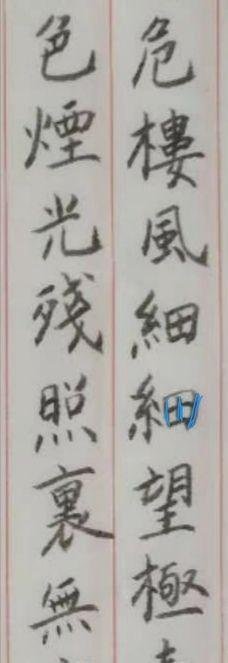 危樓風細細望極
色煙光殘照裏無